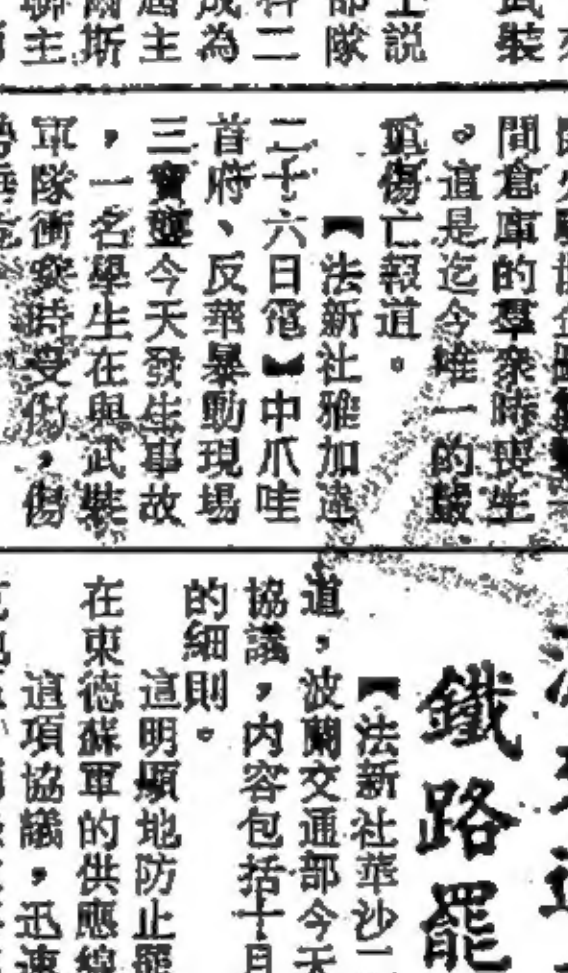 士説
部隊
科二
成為
遇主
爾斯
聯主
間倉庫的羣衆時喪生
。這是迄今唯一的嚴
重傷亡報道。
【法新社雅加達
二十六日電】中爪哇
首府、反華暴動現場
三寶壟今天發生事故
，一名學生在與武裝
軍隊衝突時受傷，傷
鐵路罷
【法新社華沙
道，波蘭交通部今天
協議，内容包括十月
的細則。
這明顯地防止罷
在東德蘇軍的供應線
這項協議，迅速